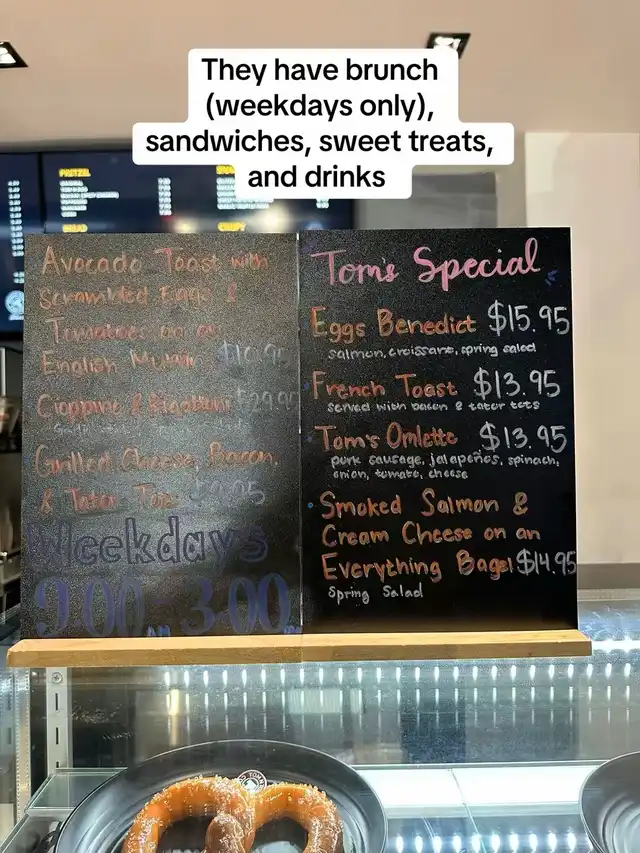 They have brunch
(weekdays only),
sandwiches, sweet treats,
and drinks
PRETZEL
Avocado Toast with
Scrambled Eggs &
Tomatoes on an
English Muffin
Cioppino & Rigatoni $29.95
Grilled Cheese, Bacon,
& Tater Tots
Weekdays
9:00 AM - 3:00 PM
Tom's Special
Eggs Benedict $15.95
salmon, croissant, spring salad
French Toast $13.95
served with bacon & tater tots
Tom's Omlette $13.95
pork sausage, jalapeños, spinach,
onion, tomato, cheese
Smoked Salmon &
Cream Cheese on an
Everything Bagel $14.95
Spring Salad